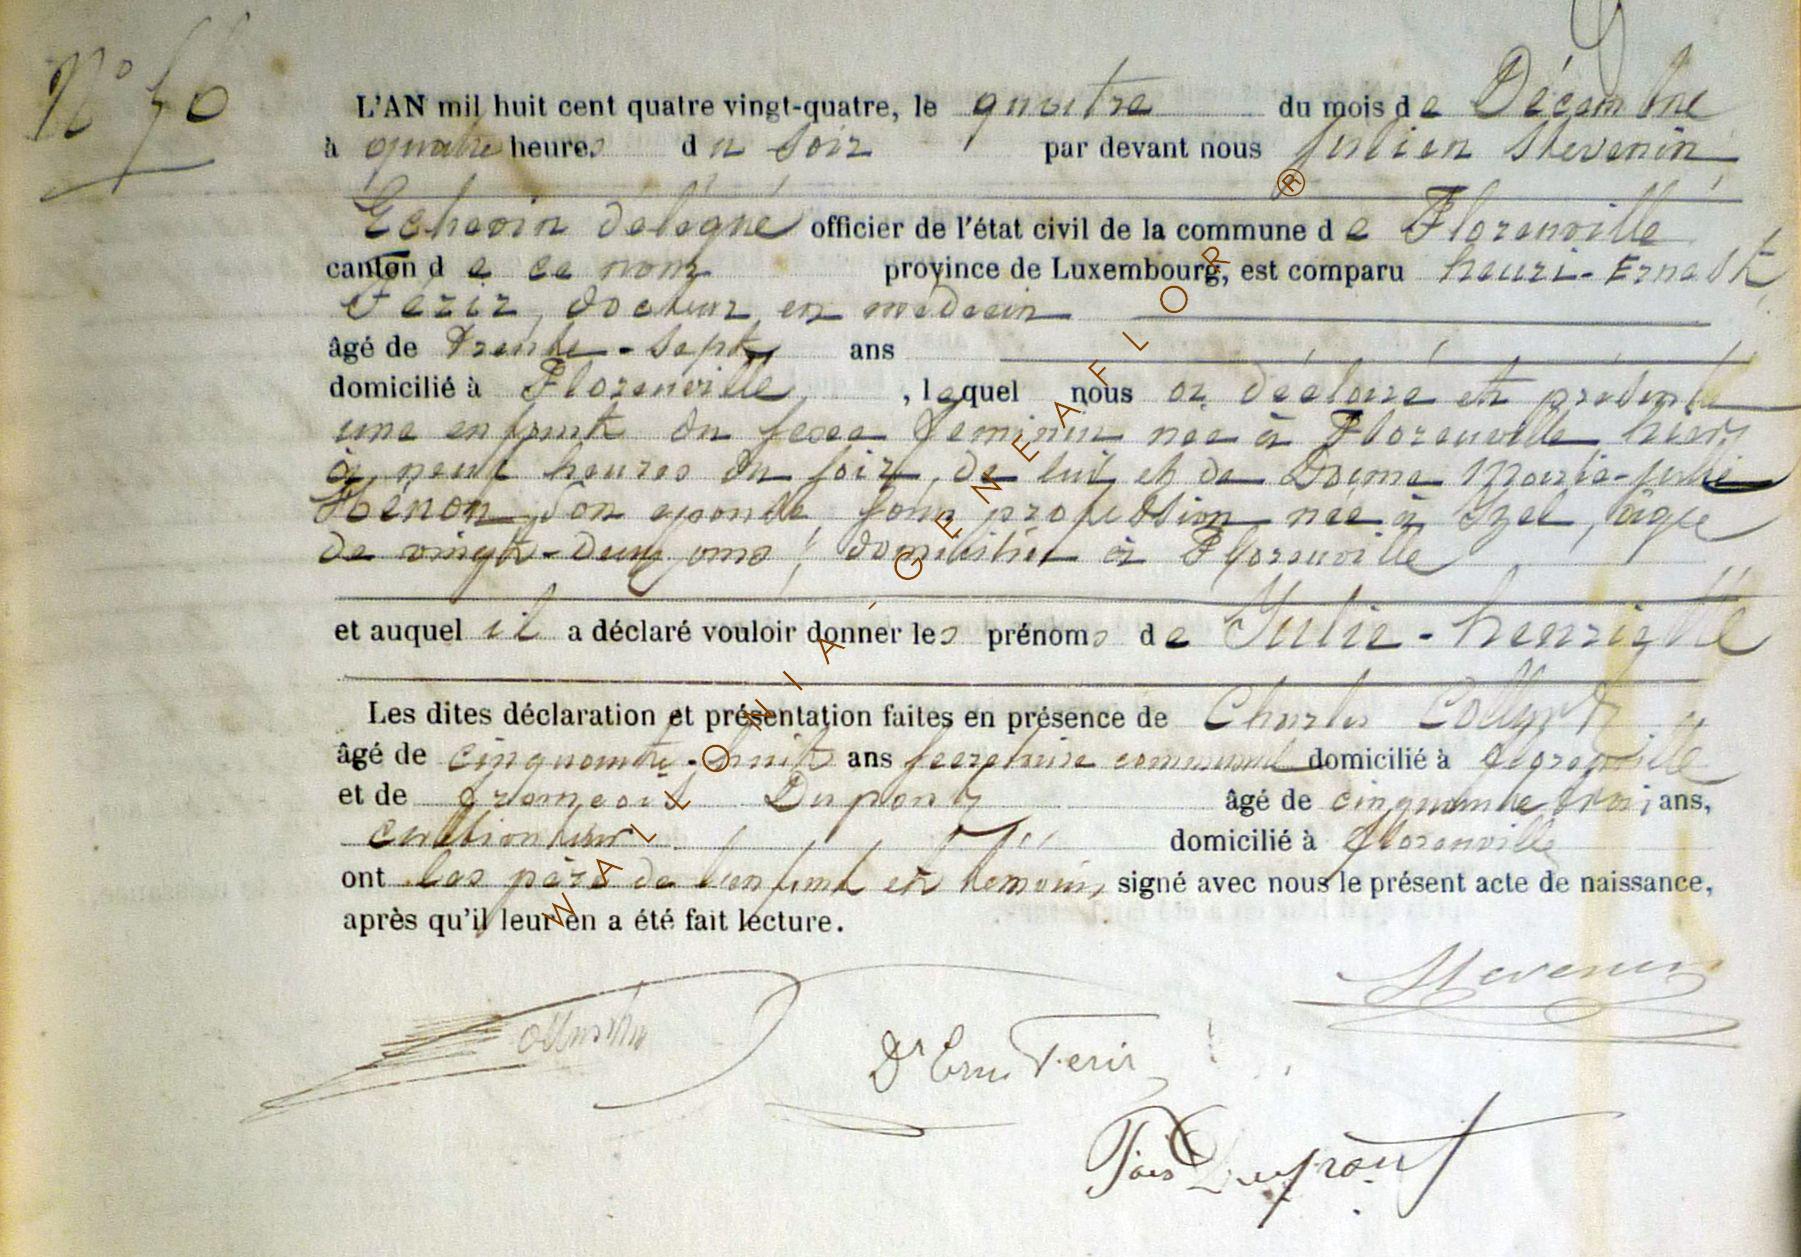 N° 56
L'AN mil huit cent quatre vingt-quatre, le quatre du mois de Décembre
à quatre heures du soir par devant nous Julien Stevenin,
Echevin délégué officier de l'état civil de la commune de Florenville
canton de ce nom province de Luxembourg, est comparu henri-Ernest
Férir, docteur en médecin
âgé de Trente-sept ans
domicilié à Florenville, lequel nous a déclaré et présenté
une enfant du sexe feminin née à Florenville hier
à neuf heures du soir, de lui et de Dame Marie-julie
Hénon son epouse, sans profession née à Izel, âgée
de vingt-deux ans, domiciliée à Florenville
et auquel il a déclaré vouloir donner les prénoms de Julie-henriette
Les dites déclaration et présentation faites en présence de Charles
âgé de cinquante-huit ans secretaire communal domicilié à Florenville
et de françois Dupont âgé de cinquante trois ans,
cultivateur domicilié à Florenville
ont les père de l'enfant et temoins signé avec nous le présent acte de naissance,
après qu'il leur en a été fait lecture.
Stevenin
Dr Ern Ferir
Fois Dupont
WALLONIA - GENEAFLOR ®